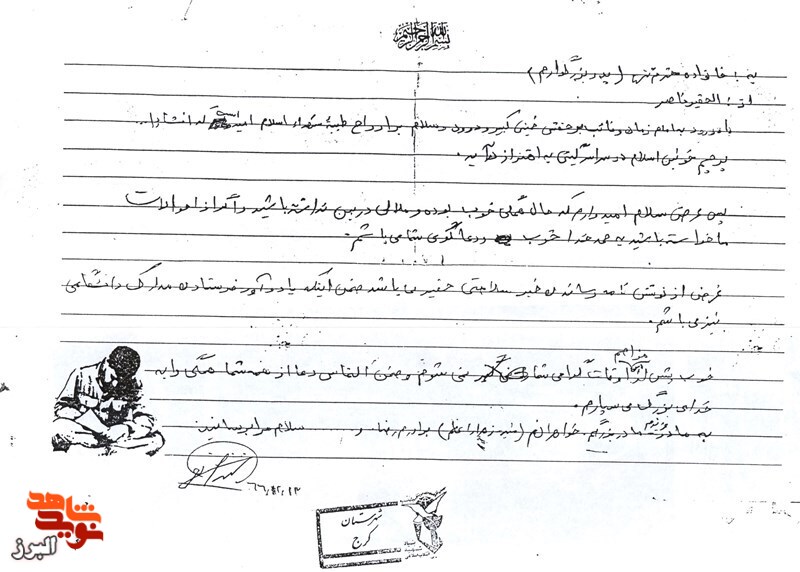 بسم الله الرحمن الرحیم
به: خانواده محترم (پدر بزرگوارم)
از: الحقیر ناصر
با درود به امام زمان و نائب بر حقش خمینی کبیر و درود و سلام بر ارواح طیبهٔ شهداء اسلام امید است که انشاءا...
پرچم خونین اسلام در سراسر گیتی به اهتزاز درآید.
پس عرض سلام امیدوارم که حال همگی خوب بوده و ملالی در بین نداشته باشید و اگر از احوالات
ما خواسته باشید به حمد خدا خوب و دعاگوی شما می باشم.
غرض از نوشتن نامه رساندن خبر سلامتی حقیر می باشد ضمن اینکه یادآور فرستادن مدارک دانشگاهی
نیز می باشم.
خوب بیش از این مزاحم اوقات گرامی شما نمی شوم و ضمن التماس دعا از همه شما همگی را به
خدای بزرگ می سپارم.
به مادر عزیزم مادر بزرگم، خواهرانم برادرم رضا و ........ سلام مرا برسانید.
۶۶،۱۲،۱۳
شهرستان
کرج
نوید شاهد
البرز